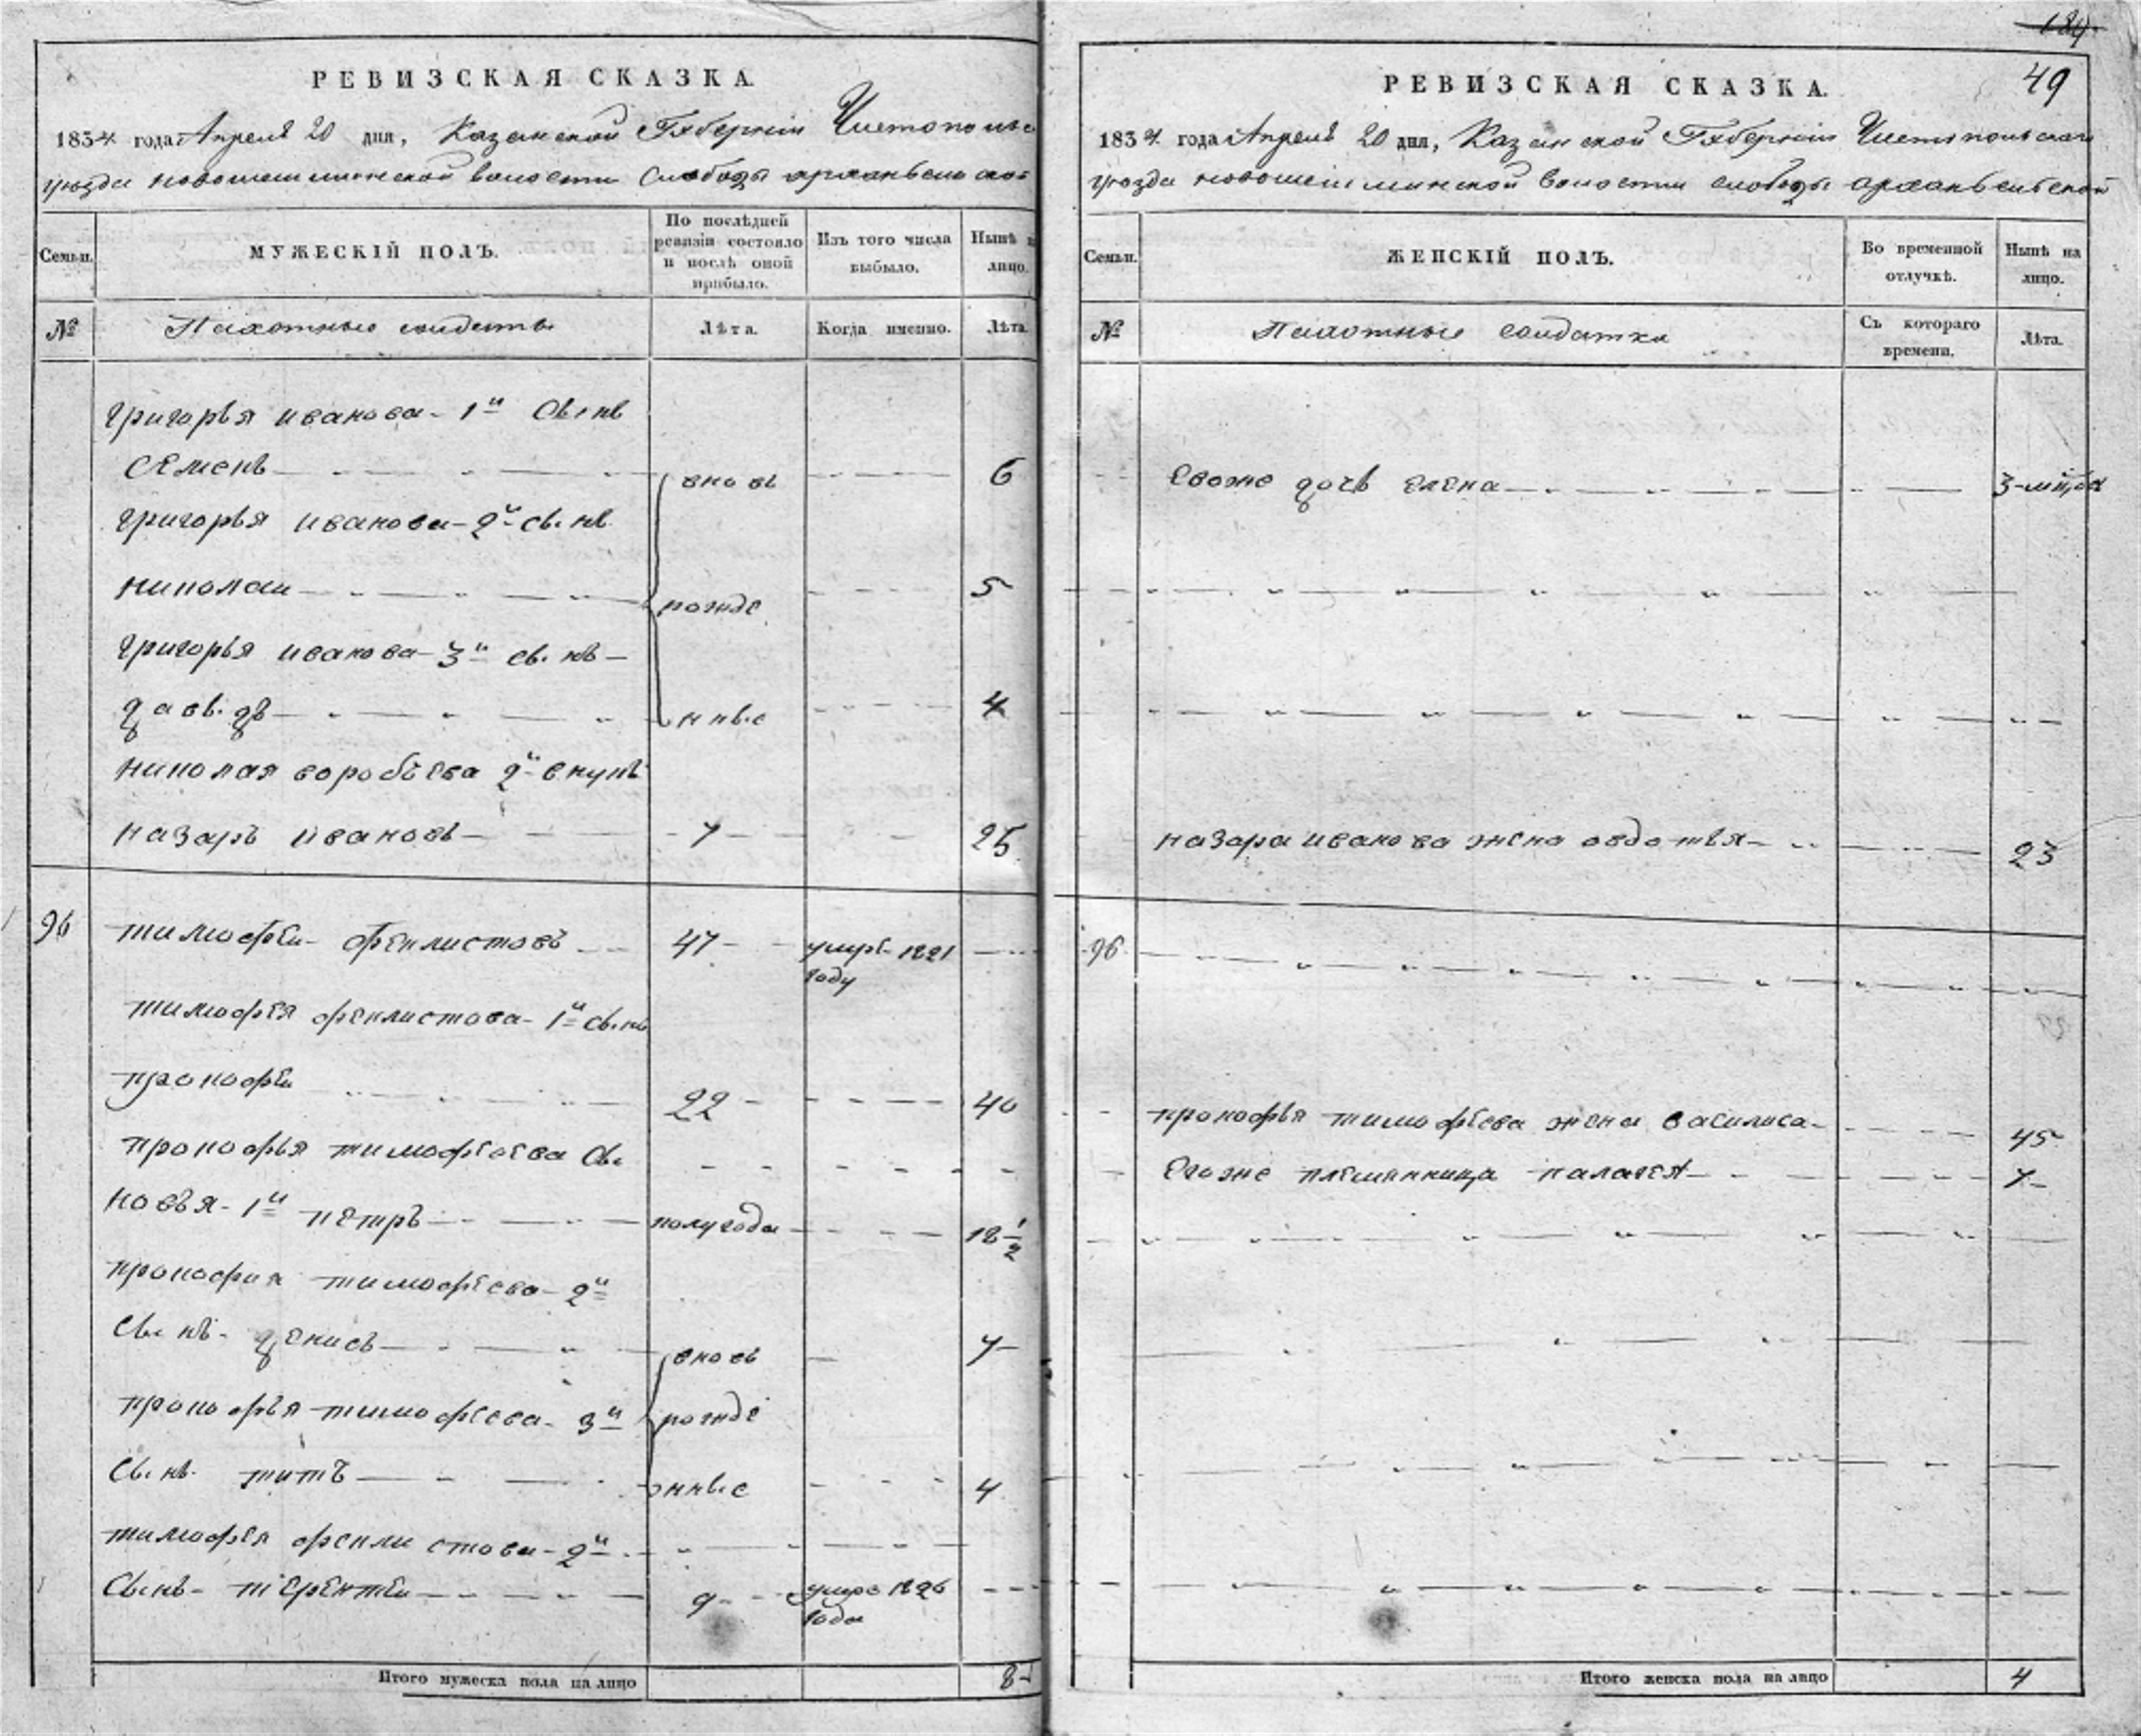 РЕВИЗСКАЯ СКАЗКА.
1834 года Апреля 20 дня, Казанской Губернiи Чистопольс
уезда новошешминской волости Слободы архангельской
Семьи.
МУЖЕСКIЙ ПОЛЪ.
По послѣдней ревизiи состояло и послѣ оной прибыло.
Изъ того числа выбыло.
Нынѣ лицо.
№
Пахотные солдаты
Лѣта.
Когда именно.
Лѣта.
григорья иванова - 1й сынъ
Семенъ вновь 6
григорья иванова - 2й сынъ
николаи рожде 5
григорья иванова - 3й сынъ
давыдъ нные 4
николая воробьева 2й внукъ
назаръ ивановъ 7 25
96 тимофеи феклистовъ 47 умре 1821
году
тимофея феклистова - 1й сынъ
прокофеи 22 40
прокофья тимофеева сы
новья - 1й петръ полугода 18 1/2
прокофия тимофеева - 2й
сынъ - денисъ вновь 7
прокофья тимофеева - 3й рожде
сынъ титъ нные 4
тимофея феклистова - 2й
сынъ - терентеи 9 умре 1826
года
Итого мужеска пола на лицо 8
184
49
РЕВИЗСКАЯ СКАЗКА.
1834 года Апреля 20 дня, Казанской Губернiи Чистопольскаго
уезда новошешминской волости слободы архангельской
Семьи.
ЖЕНСКIЙ ПОЛЪ.
Во временной отлучкѣ.
Нынѣ на лицо.
№
Пахотные солдатки
Съ котораго времени.
Лѣта.
Евоже дочь елена 3-мца
назара иванова жена авдотья 23
96
прокофья тимофеева жена василиса 45
Егоже племянница палагея 7
Итого женска пола на лицо 4